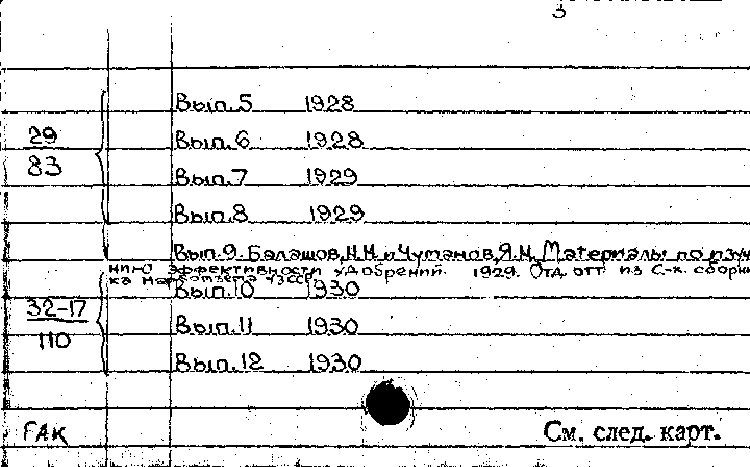 3
Вып.5 1928
29
83
Вып.6 1928
Вып.7 1929
Вып.8 1929
Вып.9. Балашов, Н.Н. и Чуманов, Я.И. Материалы по изуче
нию эффективности удобрений. 1929. Отд. отт. из С-х. сборни
ка Наркомзема УзССР
Вып.10 1930
32-17
110
Вып.11 1930
Вып.12 1930
FAK
См. след. карт.